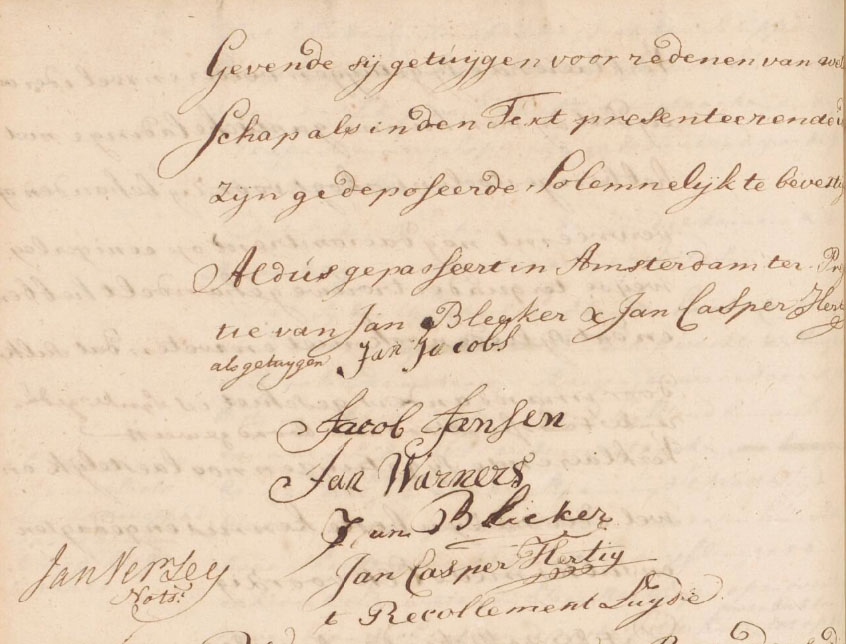 Gevende sij getuijgen voor redenen van wel
Schap als in den Text presenteerende
zijn gedeposeerde Solemnelijk te bevestig
Aldus gepasseert in Amsterdam ter Pre
tie van Jan Blecker & Jan Casper Hert
als getuijgen Jan Jacobs
Jacob Jansen
Jan Warners
Jan Blieker
Jan Casper Hertig
Jan Verleij
Nots.
t Recollement Luyde